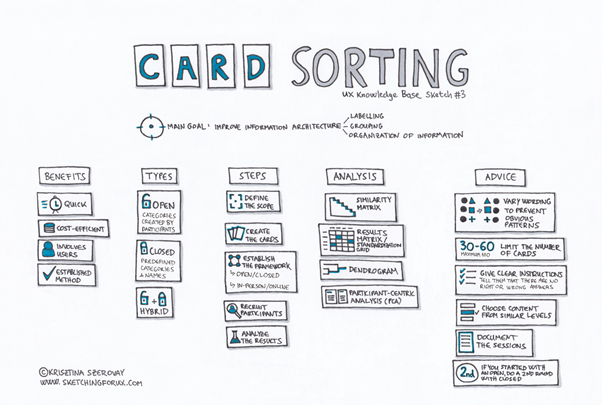 CARD SORTING
UX Knowledge Base Sketch #3
MAIN GOAL: IMPROVE INFORMATION ARCHITECTURE
LABELLING
GROUPING
ORGANIZATION OF INFORMATION
BENEFITS
QUICK
COST-EFFICIENT
INVOLVES
USERS
ESTABLISHED
METHOD
TYPES
OPEN
CATEGORIES
CREATED BY
PARTICIPANTS
CLOSED
PREDEFINED
CATEGORIES
+ NAMES
+
HYBRID
STEPS
DEFINE
THE SCOPE
CREATE
THE CARDS
ESTABLISH
THE FRAMEWORK
OPEN/CLOSED
IN-PERSON/ONLINE
RECRUIT
PARTICIPANTS
ANALYSE
THE RESULTS
ANALYSIS
SIMILARITY
MATRIX
RESULTS
MATRIX/
STANDARDISATION
GRID
DENDROGRAM
PARTICIPANT-CENTRIC
ANALYSIS (PCA)
ADVICE
VARY WORDING
TO PREVENT
OBVIOUS
PATTERNS
30-60
LIMIT THE NUMBER
OF CARDS
GIVE CLEAR INSTRUCTIONS
TELL THEM THAT THERE ARE NO
RIGHT OR WRONG ANSWERS
CHOOSE CONTENT
FROM SIMILAR LEVELS
DOCUMENT
THE SESSIONS
2nd
IF YOU STARTED WITH
AN OPEN, DO A 2ND ROUND
WITH CLOSED
©KRISZTINA SZEROVAY
WWW.SKETCHINGFORUX.COM